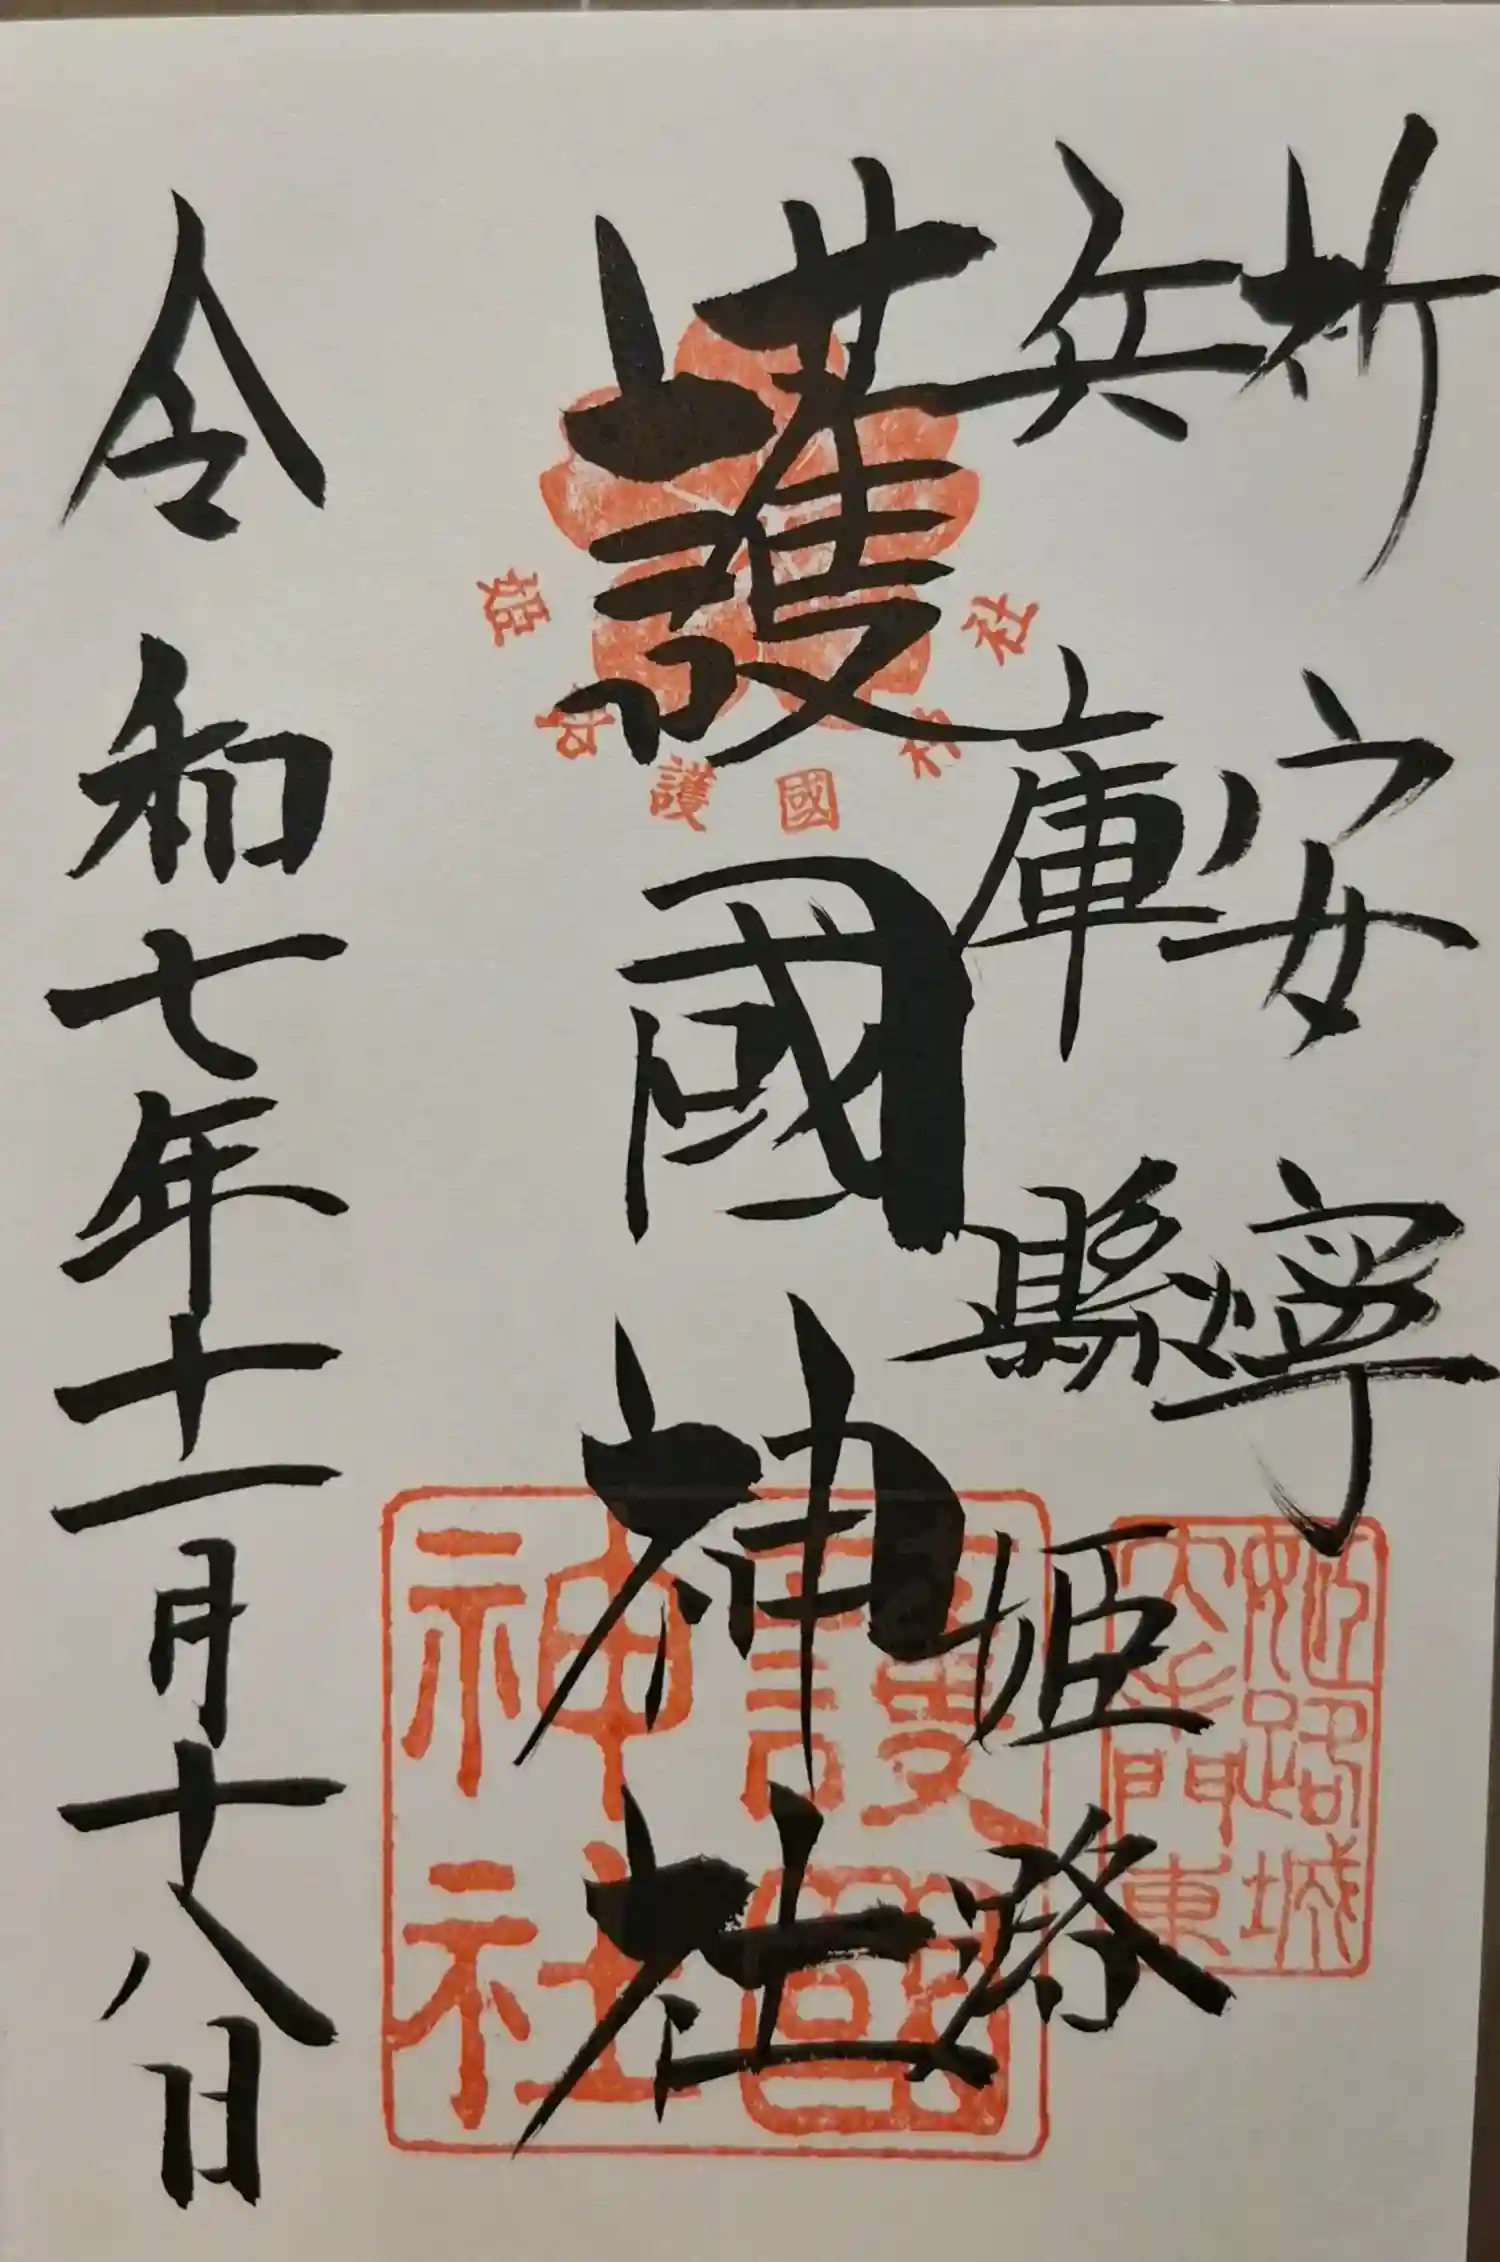 祈安寧
兵庫縣姫路
護國神社
令和七年十一月十八日
姫路護國神社
護國神社
姫路城
大手門東